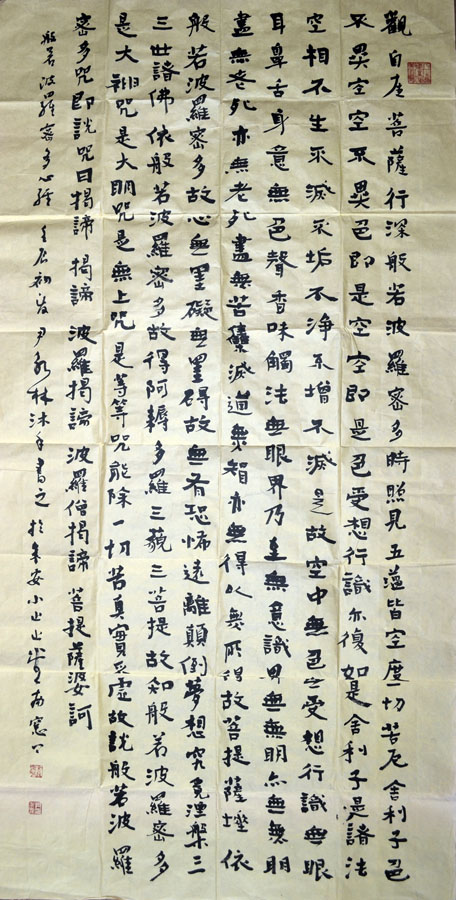 觀自在菩薩行深般若波羅密多時照見五蘊皆空度一切苦厄舍利子色
不異空空不異色即是空空即是色受想行識亦復如是舍利子是諸法
空相不生不滅不垢不淨不增不減是故空中無色無受想行識無眼
耳鼻舌身意無色聲香味觸法無眼界乃至無意識界無無明亦無無明
盡無老死亦無老死盡無苦集滅道無智亦無得以無所得故菩提薩埵依
般若波羅密多故心無罣礙無罣碍故無有恐怖遠離顛倒夢想究竟涅槃三
三世諸佛依般若波羅密多故得阿耨多羅三藐三菩提故知般若波羅密多
是大神咒是大明咒是無上咒是等等咒能除一切苦真實不虛故說般若波羅
密多咒即說咒曰揭諦揭諦波羅揭諦波羅僧揭諦菩提薩婆訶
般若波羅密多心經 壬辰初夏尹永林沐手書之於 小 南窓